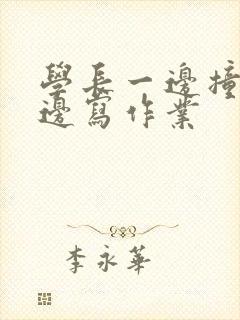 學長一邊撞
邊寫作業
李永華